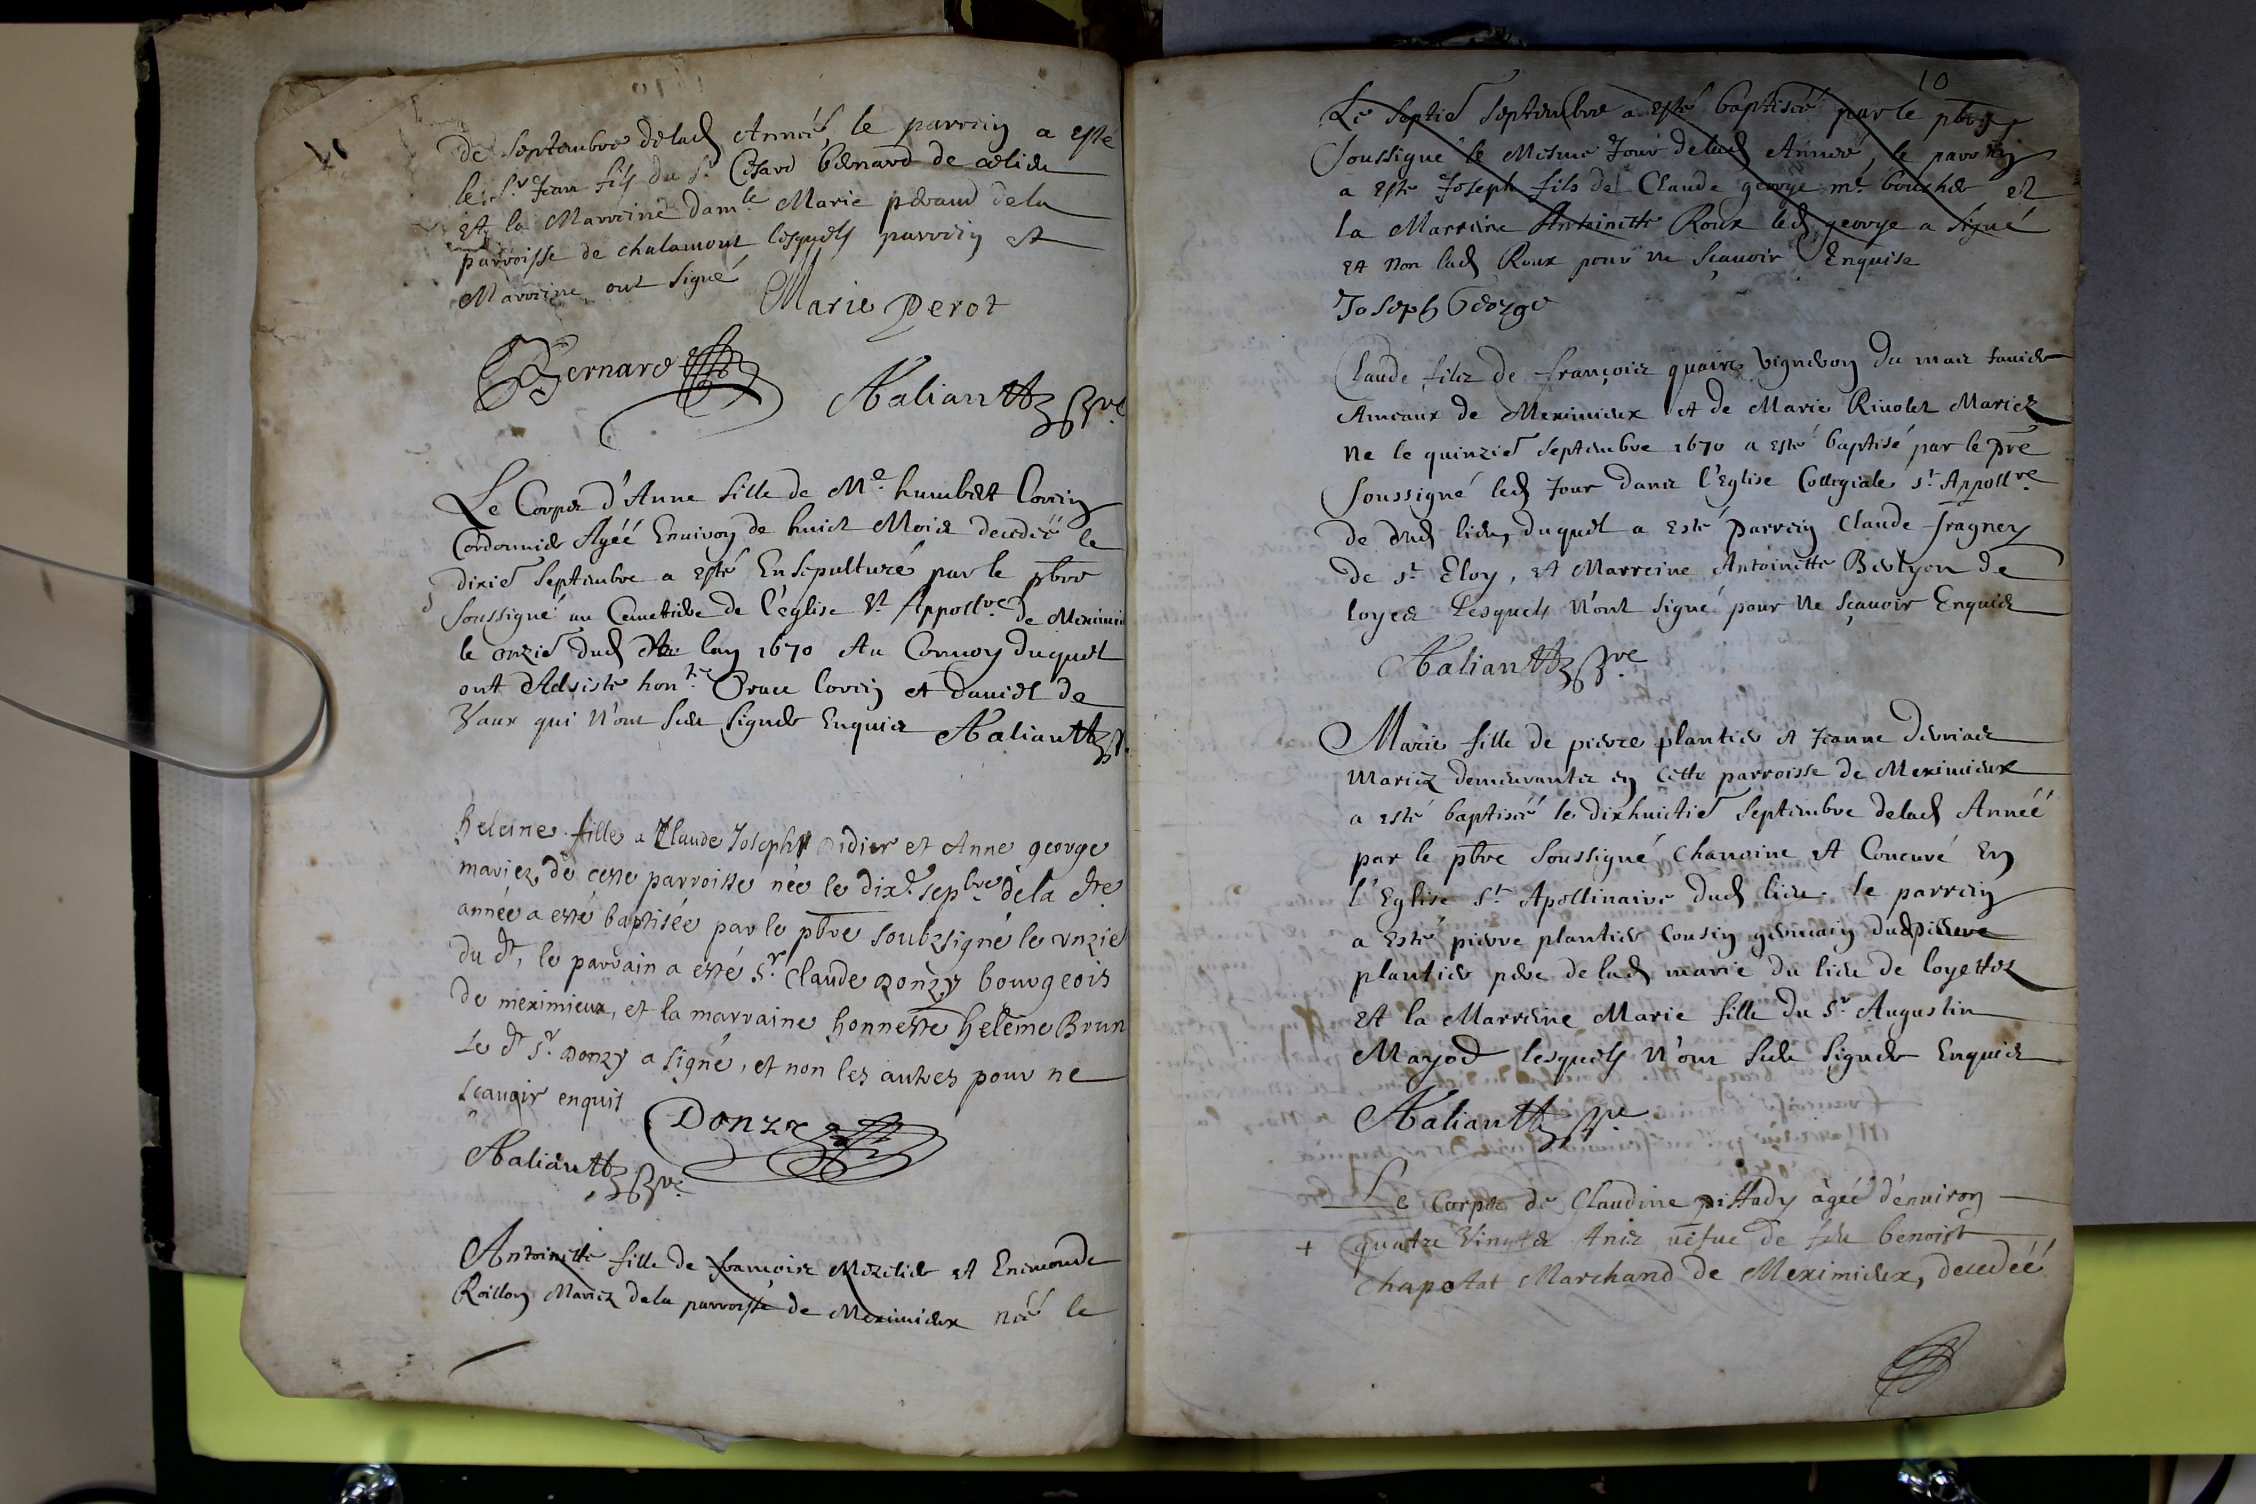 de Septembre delad Année, le parrein a esté
le Sr Jean fils du Sr Cesard Bernard de
Et la Marreine damlle Marie peraud dela
parroisse de chalamont lesquels parrein et
Marreine ont signé
Marie Perot
Bernard
Le Corps d'Anne fille de Me humbert
Cordonnier Agéé Enuiron de huict Mois decedéé le
dixie Septembre a esté Ensepulturé par le pbre
Soussigné au Cemetiere de l'église St Appollre de Meximie
le onzie dud lan 1670 Au Conuoy duquel
ont Adsisté et daniel de
Vaux qui n'ont sceu signer Enquis
heleine fille a Claude Joseph Didier et Anne george
mariez, de ceste parroisse née le dixe sepbre de la dte
année a esté baptisée par le pbre soubzsigné le vnzie
du dt, le parrain a esté Sr Claude Donzy bourgeois
de meximieux, et la marraine honneste heleine Brun
Le dt Sr Donzy a signé, et non les autres pour ne
sçauoir enquis
Donzy
Antoinette fille de françois et Enemonde
Roillon Mariez dela parroisse de Meximieux néé le
10
Le septie Septembre a esté baptiséé par le pbre
soussigné le Mesme Jour delad Année, le parrein
a esté Joseph fils de Claude george me boucher et
la Marreine Antoinette Roux led george a signé
et non lad Roux pour ne sçauoir Enquise
Joseph George
Claude filz de françois quaire vigneron du mas
Ameaux de Meximieux et de Marie Riuolet Mariez
Ne le quinzie Septembre 1670 a esté baptisé par le pre
Soussigné led Jour dans l'Eglise Collegiale St Appollre
de dud lieu, duquel a esté parrein Claude fragney
de St Eloy, et Marreine Antoinette de
loyes Lesquels n'ont signé pour ne sçauoir Enquis
Marie fille de pierre plantier et Jeanne
Mariez demeurants en cette parroisse de Meximieux
a esté baptiséé le dixhuictie Septembre delad Annéé
par le pbre Soussigné Chanoine et Concuré En
l'Eglise St Apollinaire dud lieu. le parrein
a esté pierre plantier Cousin germain dud pierre
plantier pere de lad marie du lieu de loyettes
et la Marreine Marie fille du Sr Augustin
Mayod lesquels n'ont sceu signer Enquis
Le Corps de Claudine agéé d'enuiron
quatre vingts Ans vefue de feu benoist
Chapotat Marchand de Meximieux, decedéé